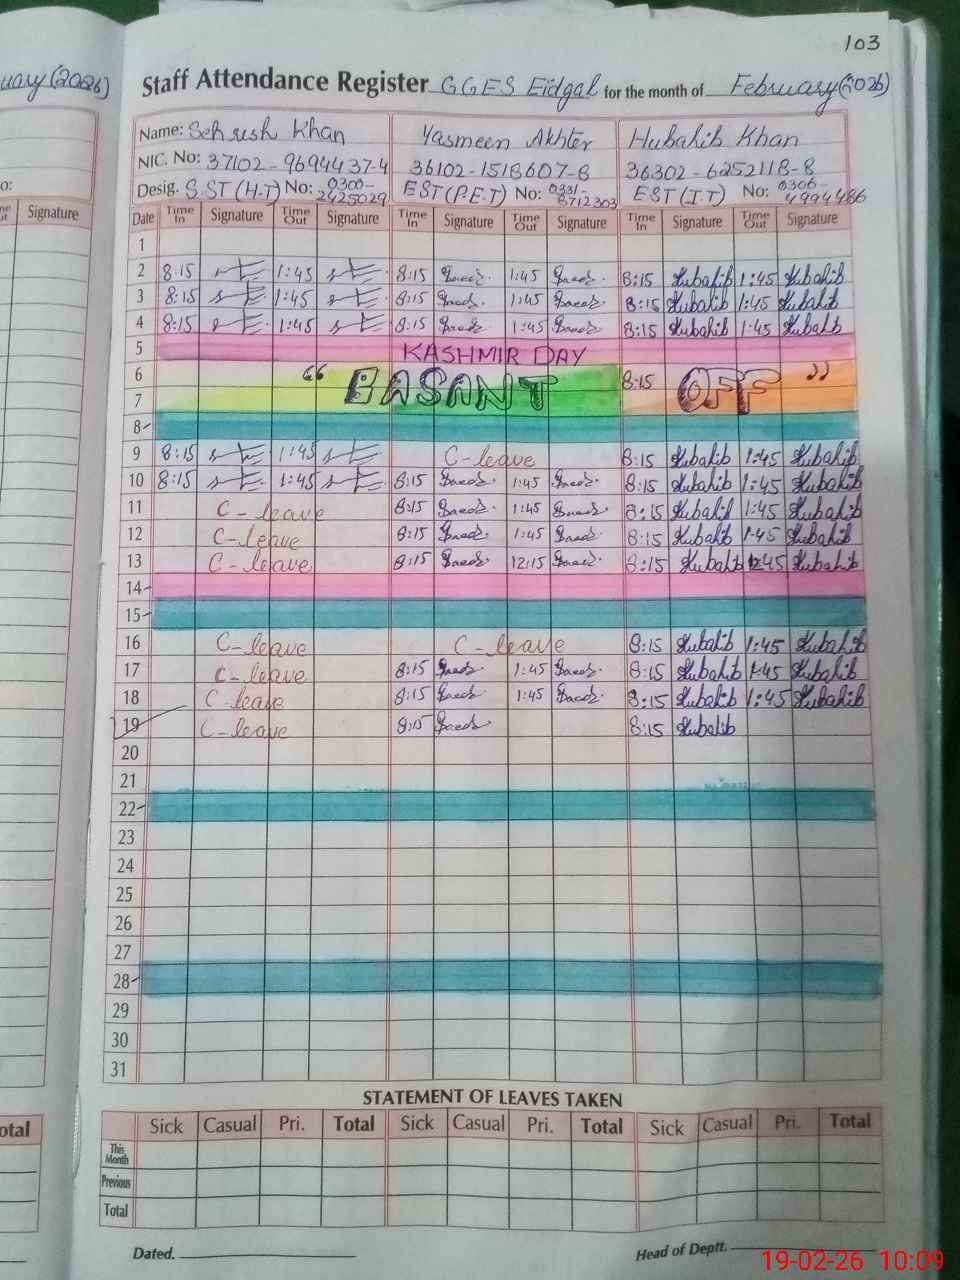 103
uary(2026)
Staff Attendance Register GGES Eidgal for the month of February(2026)
Name: Sehrish Khan Yasmeen Akhter Hubahib Khan
NIC. No: 37102-9694437-4 36102-1518607-8 36302-6252118-8
Desig. S.ST(H-T) No: 0300-2425029 EST(P.E.T) No: 0331-8712303 EST(I.T) No: 0306-4994486
Signature Date Time In Signature Time Out Signature Time In Signature Time Out Signature Time In Signature Time Out Signature
1
2 8:15 1:45 8:15 1:45 8:15 Hubahib 1:45 Hubahib
3 8:15 1:45 8:15 1:45 8:15 Hubahib 1:45 Hubahib
4 8:15 1:45 8:15 1:45 8:15 Hubahib 1:45 Hubahib
5 KASHMIR DAY
6 "BASANT 8:15 OFF"
7
8-
9 8:15 1:45 C-leave 8:15 Hubahib 1:45 Hubahib
10 8:15 1:45 8:15 1:45 8:15 Hubahib 1:45 Hubahib
11 C-leave 8:15 1:45 8:15 Hubahib 1:45 Hubahib
12 C-leave 8:15 1:45 8:15 Hubahib 1:45 Hubahib
13 C-leave 8:15 12:15 8:15 Hubahib 12:45 Hubahib
14-
15-
16 C-leave C-leave 8:15 Hubahib 1:45 Hubahib
17 C-leave 8:15 1:45 8:15 Hubahib 1:45 Hubahib
18 C-leave 8:15 1:45 8:15 Hubahib 1:45 Hubahib
19 C-leave 8:15 8:15 Hubahib
20
21
22-
23
24
25
26
27
28-
29
30
31
STATEMENT OF LEAVES TAKEN
otal Sick Casual Pri. Total Sick Casual Pri. Total Sick Casual Pri. Total
This Month
Previous
Total
Dated. Head of Deptt.
19-02-26 10:09